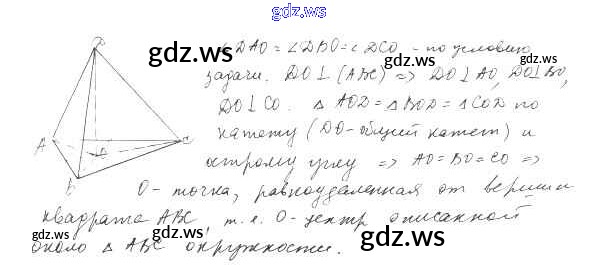 gdz.ws
D
gdz.ws
∠DAO = ∠DBO = ∠DCO - по условию
gdz.ws
задачи. DO⊥(ABC) => DO⊥AO, DO⊥BO,
DO⊥CO. △AOD = △BOD = △COD по
A O C
катету (DO - общий катет) и
B
острому углу => AO = BO = CO =>
O - точка, равноудаленная от вершин
квадрата ABC, т.е. O - центр описанной
gdz.ws
около △ABC окружности.
gdz.ws